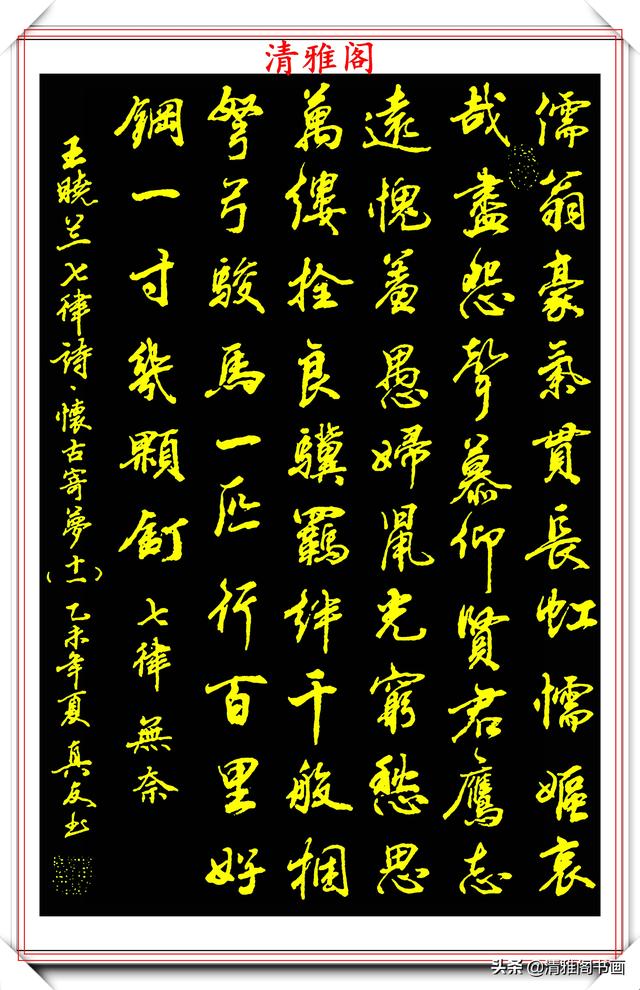 清雅阁
儒翁豪氣貫長虹懦嫗哀
哉盡怨聲慕仰賢君鷹志
遠愧羞愚婦鼠光窮愁思
萬縷拴良驥羈絆千般捆
弩弓駿馬一匹行百里好
鋼一寸幾顆釘 七律 無奈
王曉兰七律詩、懷古寄夢(十一) 乙未年夏 真友书
头条 @清雅阁书画